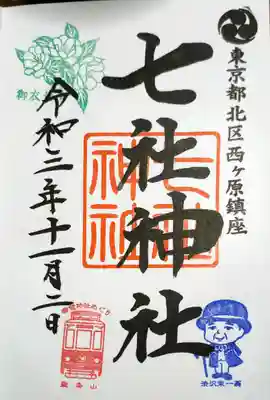 東京都北区西ヶ原鎮座
七社神社
七社
神社
令和三年十一月二日
御衣
飛鳥山
渋沢栄一翁